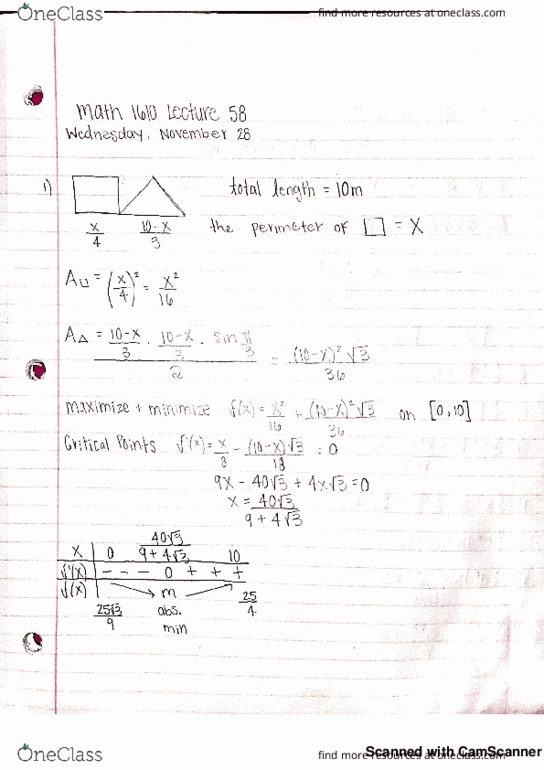 OneClass find more resources at oneclass.com
Math 1610 Lecture 58
Wednesday, November 28
1) total length = 10m
x/4 (10-x)/3 the perimeter of □ = X
A□ = (x/4)² = x²/16
A△ = ((10-x)/3 · (10-x)/3 · sin π/3)/2 = (10-x)²√3/36
maximize + minimize f(x) = x²/16 + (10-x)²√3/36 on [0,10]
Critical Points f'(x) = x/8 - (10-x)√3/18 = 0
9x - 40√3 + 4x√3 = 0
x = 40√3/(9+4√3)
x | 0 40√3/(9+4√3) 10
f'(x) | - - - 0 + + +
f(x) | 25√3/9 ↘ m ↗ 25/4
abs.
min
Scanned with CamScanner
OneClass find more resources at oneclass.com